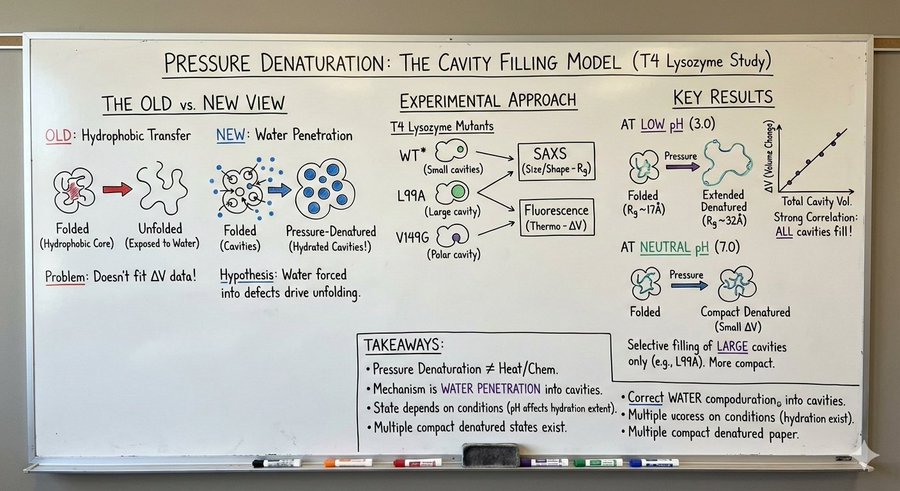 PRESSURE DENATURATION: THE CAVITY FILLING MODEL (T4 Lysozyme Study)
THE OLD vs. NEW VIEW
OLD: Hydrophobic Transfer
NEW: Water Penetration
Folded
(Hydrophobic Core)
Unfolded
(Exposed to Water)
Folded
(Cavities)
Pressure-Denatured
(Hydrated Cavities!)
Problem: Doesn't fit ΔV data!
Hypothesis: Water forced
into defects drive unfolding.
EXPERIMENTAL APPROACH
T4 Lysozyme Mutants
WT*
(Small cavities)
L99A
(Large cavity)
V149G
(Polar cavity)
SAXS
(Size/Shape - Rg)
Fluorescence
(Thermo - ΔV)
KEY RESULTS
AT LOW pH (3.0)
Pressure
Folded
(Rg~17Å)
Extended
Denatured
(Rg~32Å)
ΔV (Volume Change)
Total Cavity Vol.
Strong Correlation:
ALL cavities fill!
AT NEUTRAL pH (7.0)
Pressure
Folded
Compact Denatured
(Small ΔV)
Selective filling of LARGE cavities
only (e.g., L99A). More compact.
TAKEAWAYS:
• Pressure Denaturation ≠ Heat/Chem.
• Mechanism is WATER PENETRATION into cavities.
• State depends on conditions (pH affects hydration extent).
• Multiple compact denatured states exist.
• Correct WATER compoduration into cavities.
• Multiple ucoress on conditions (hydration exist).
• Multiple compact denatured paper.